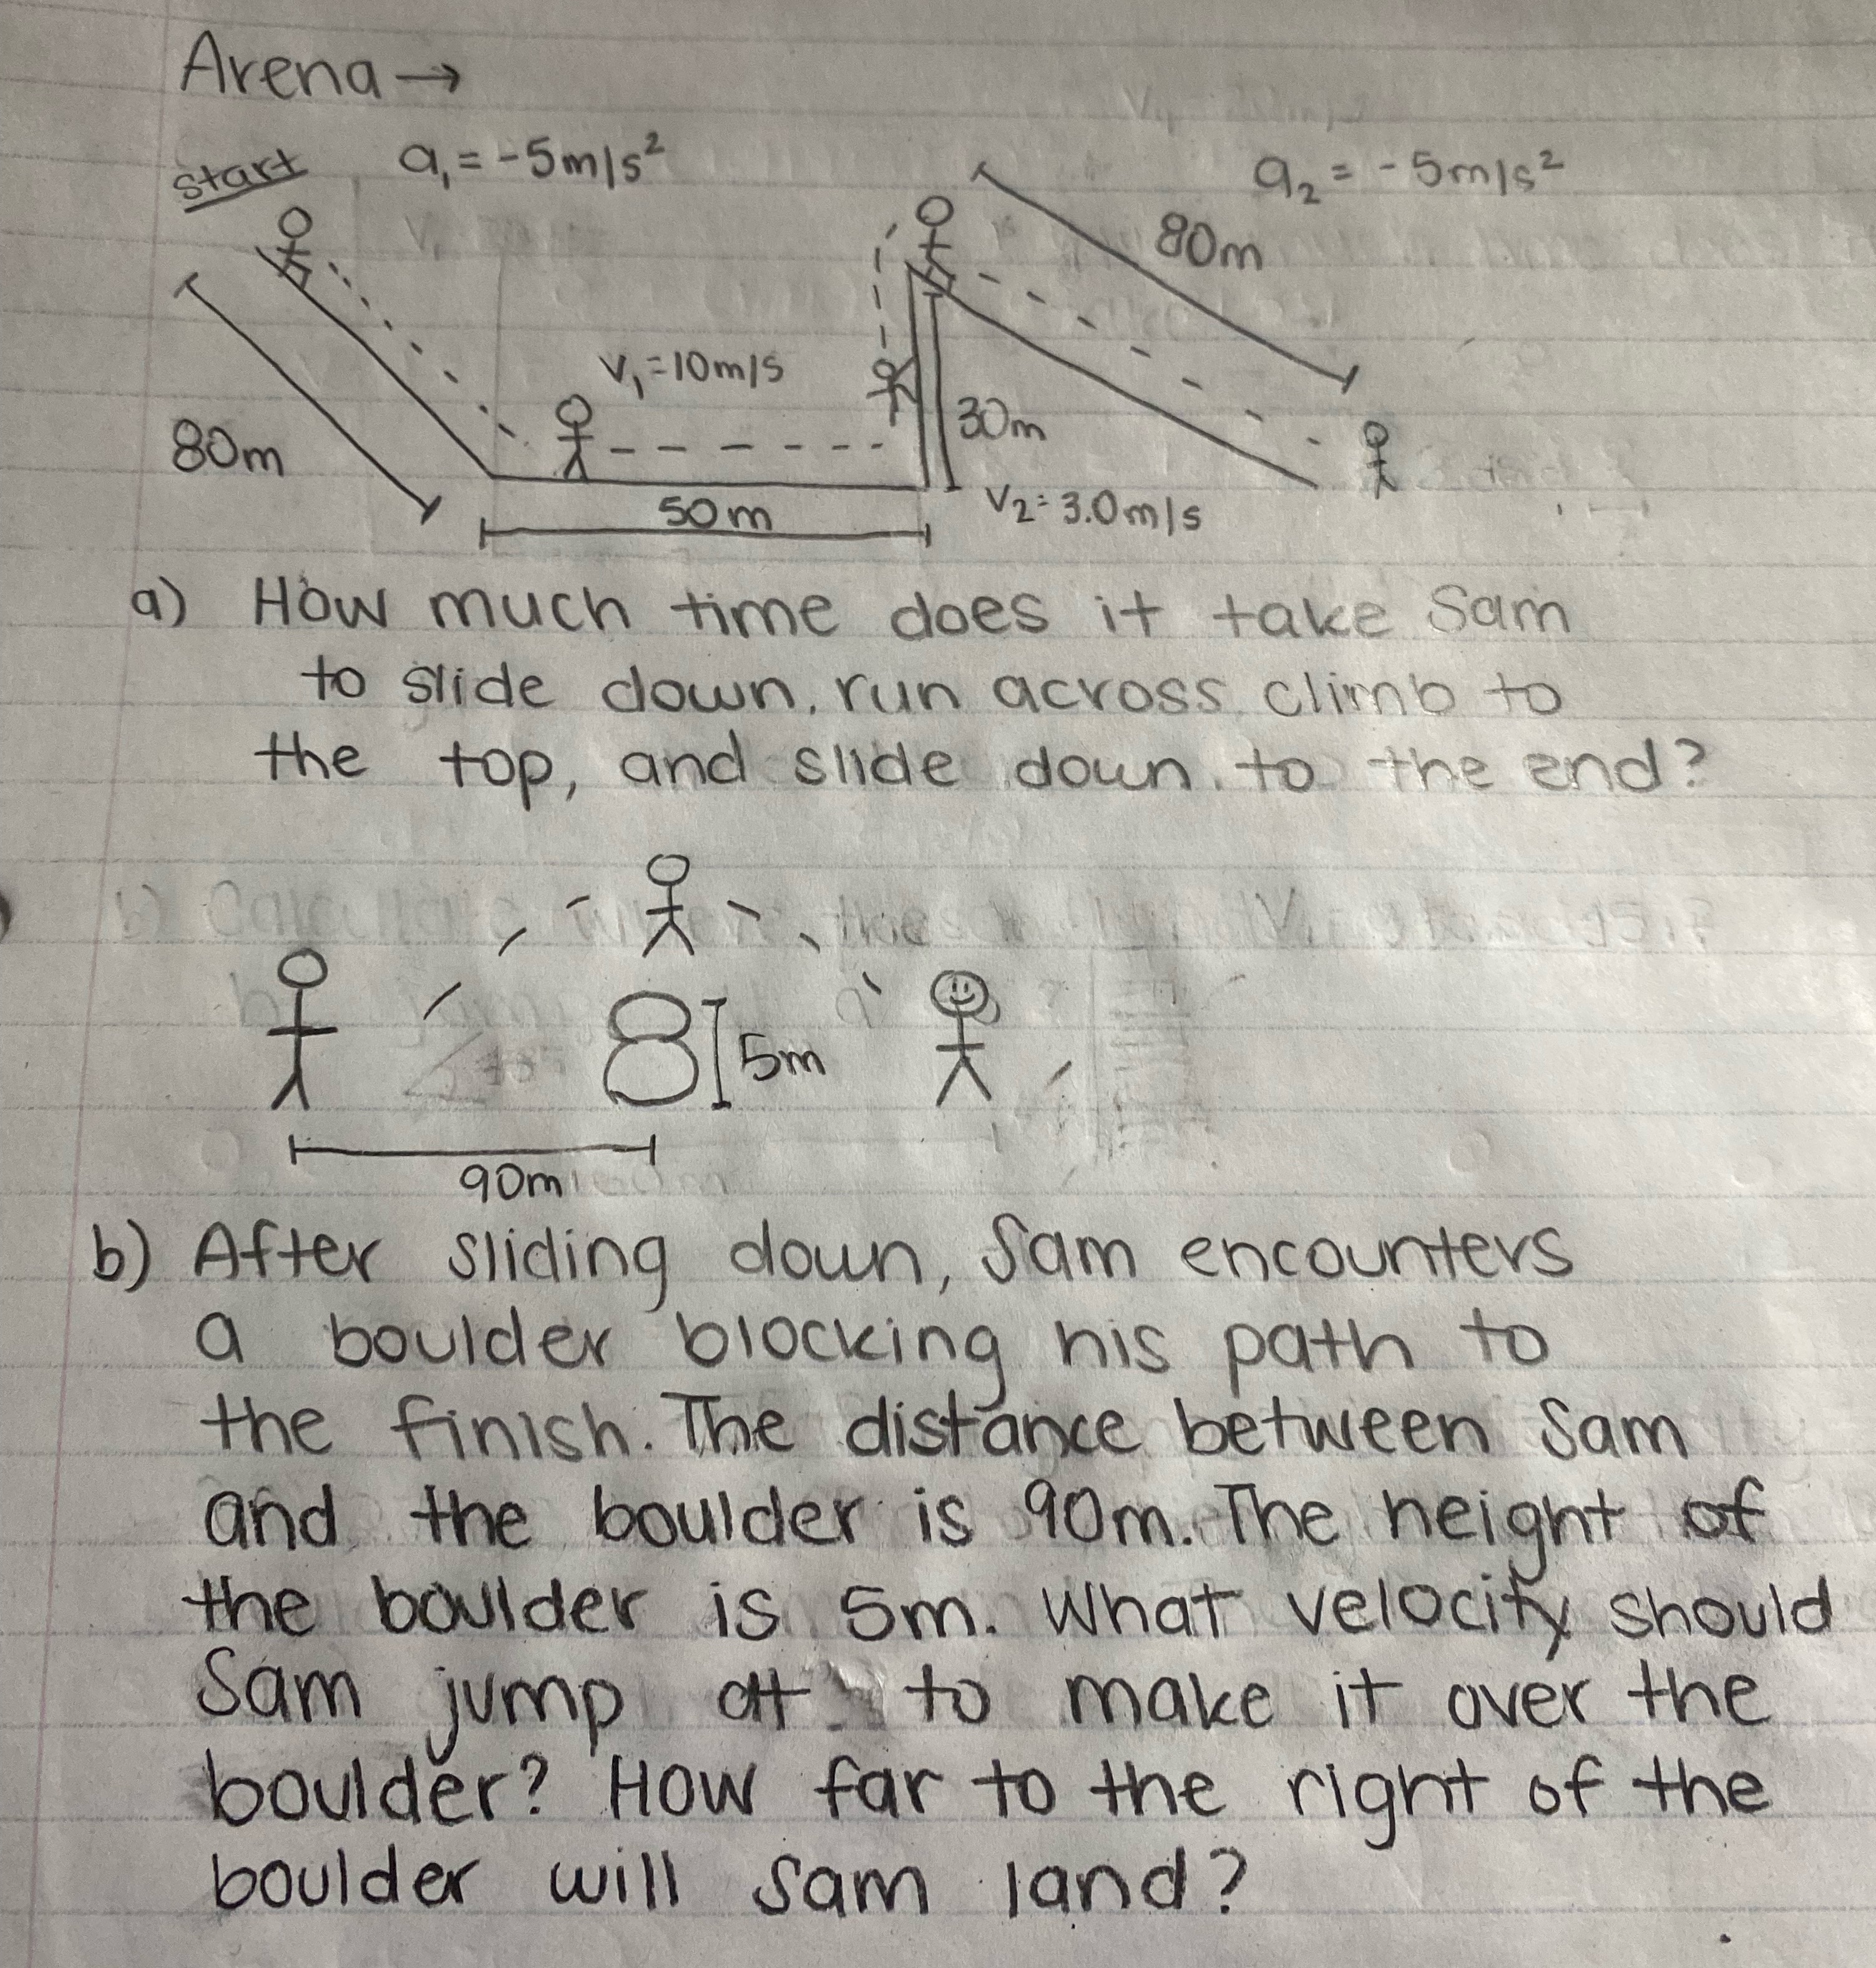 Arena →
start a₁ = -5m/s² a₂ = -5m/s²
80m
v₁ = 10m/s
80m 30m
50m v₂ = 3.0m/s
a) How much time does it take Sam
to slide down, run across, climb to
the top, and slide down to the end?
5m
90m
b) After sliding down, Sam encounters
a boulder blocking his path to
the finish. The distance between Sam
and the boulder is 90m. The height of
the boulder is 5m. What velocity should
Sam jump at to make it over the
boulder? How far to the right of the
boulder will Sam land?